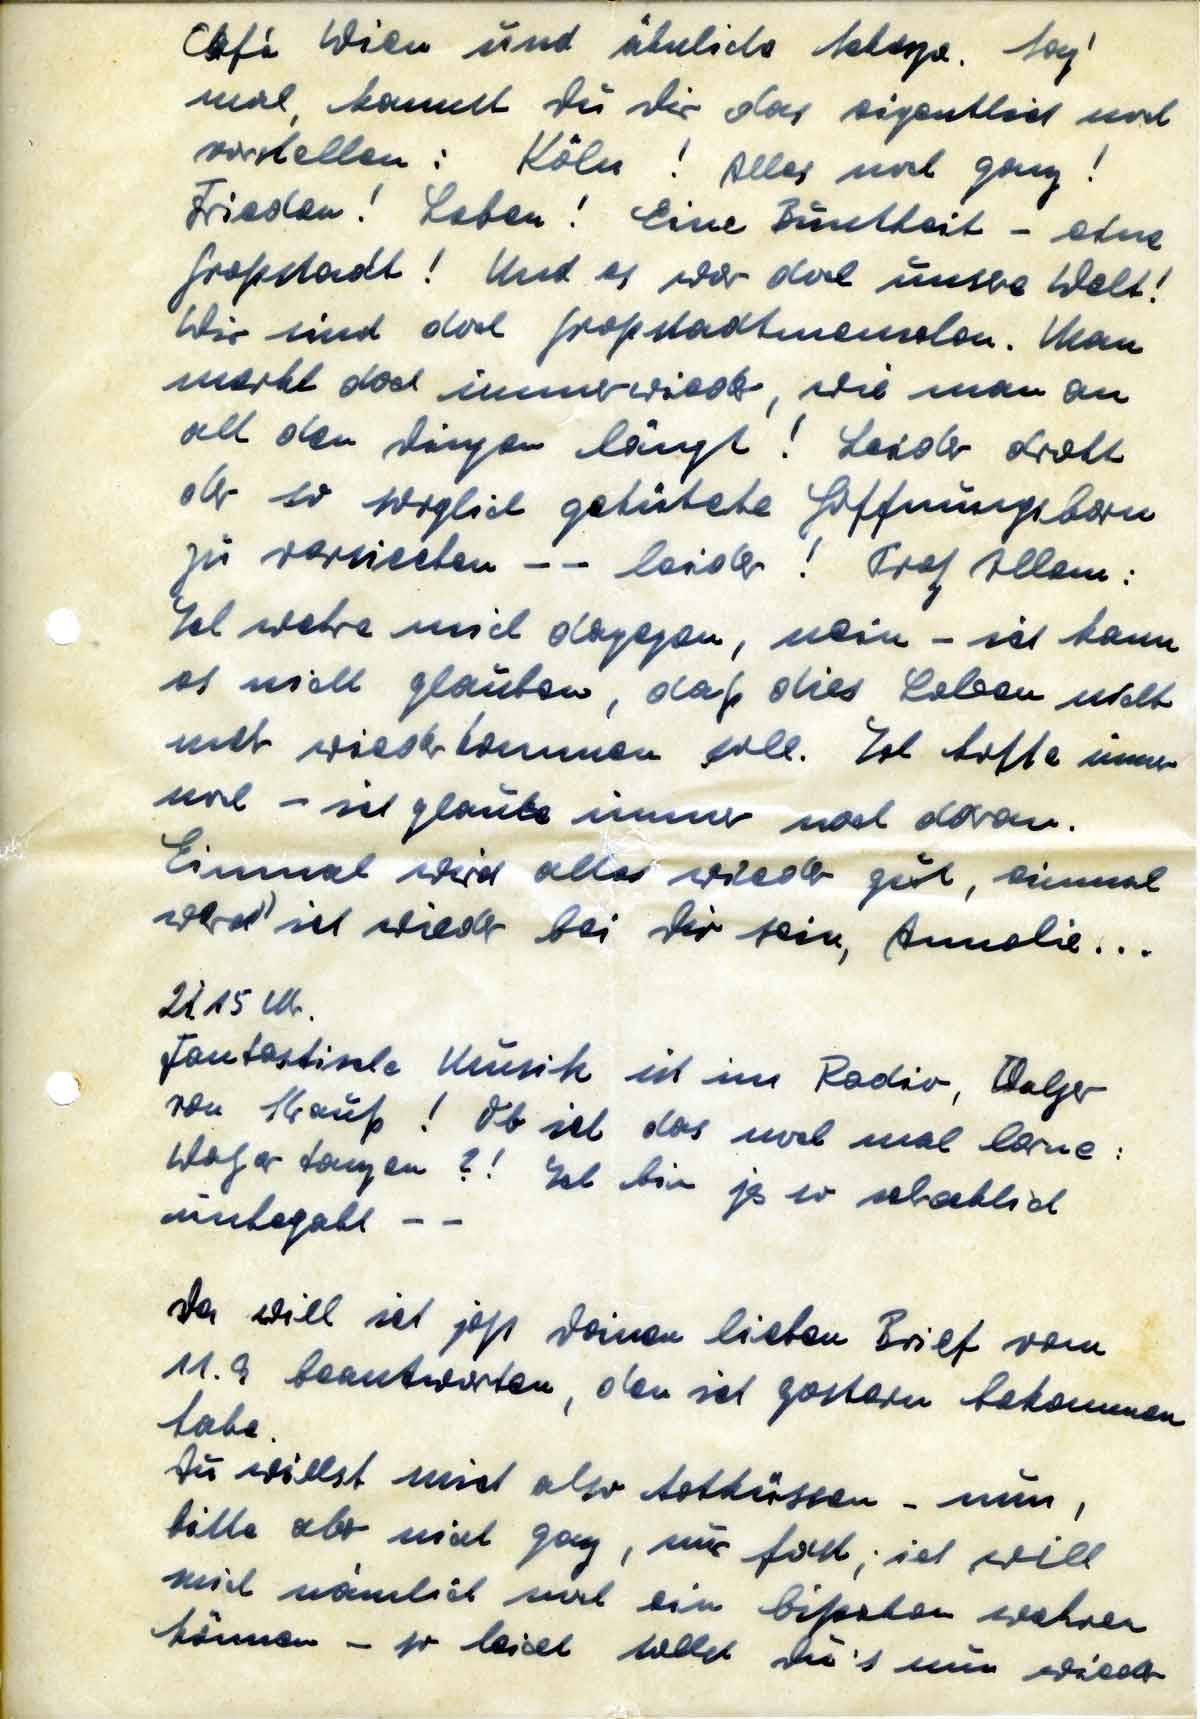 Café Wien und ähnliche Scherze. Sag'
mal, kannst Du Dir das eigentlich noch
vorstellen: Köln! Alles noch ganz!
Frieden! Leben! Eine Buntheit – eine
Großstadt! Und es war doch unsere Welt!
Wir sind doch Großstadtmenschen. Man
merkt doch immer wieder, wie man an
all den Dingen hängt! Leider droht
der so sorglich gehütete Hoffnungsborn
zu versiechen -- leider! Trotz Allem:
Ich wehre mich dagegen, nein – ich kann
es nicht glauben, daß dies Leben nicht
mehr wiederkommen soll. Ich hoffe immer
noch – ich glaube immer noch daran.
Einmal wird alles wieder gut, einmal
werd' ich wieder bei Dir sein, Annelie...
21.15 Uhr.
Fantastische Musik ist im Radio, Walzer
von Strauß! Ob ich das noch mal lerne:
Walzer tanzen?! Ich bin ja so schrecklich
unbegabt --
Da will ich jetzt Deinen lieben Brief vom
11.9 beantworten, den ich gestern bekommen
habe.
Du willst mich also totküssen – nun,
bitte aber nicht ganz, nur fast; ich will
mich nämlich noch ein bißchen wehren
können – so leicht sollst Du's nun wieder